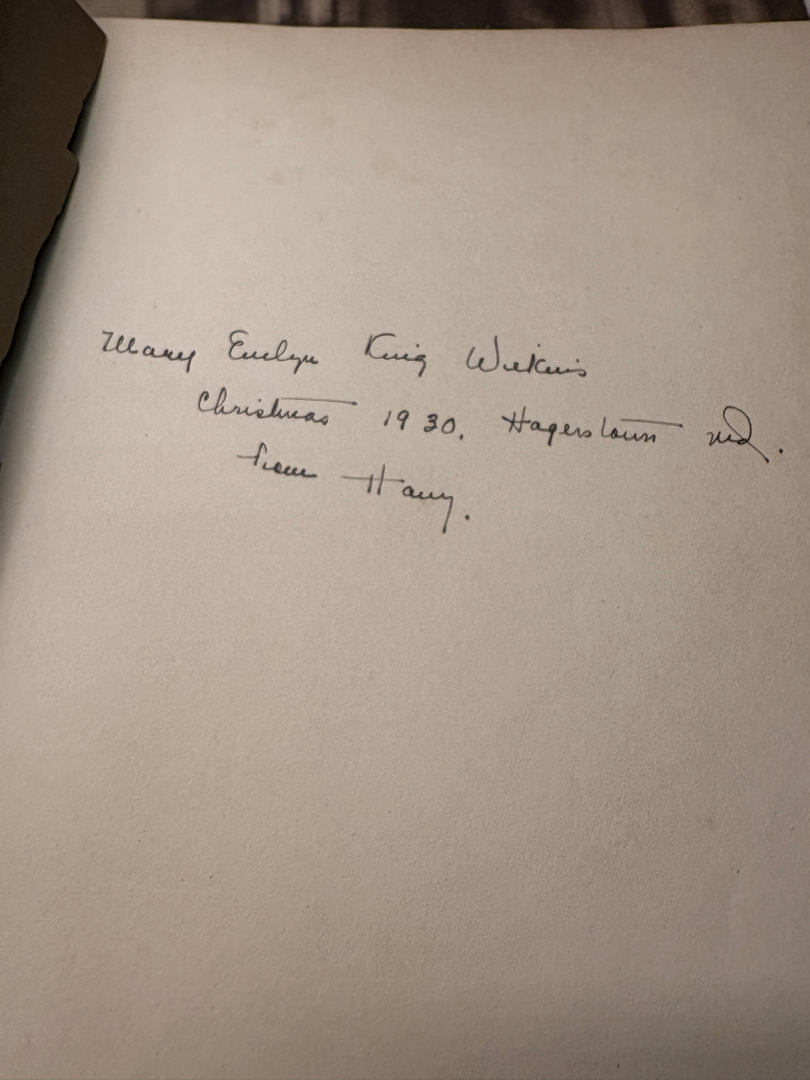 Mary Evelyn King Wilkins
Christmas 1930. Hagerstown Md.
from Harry.